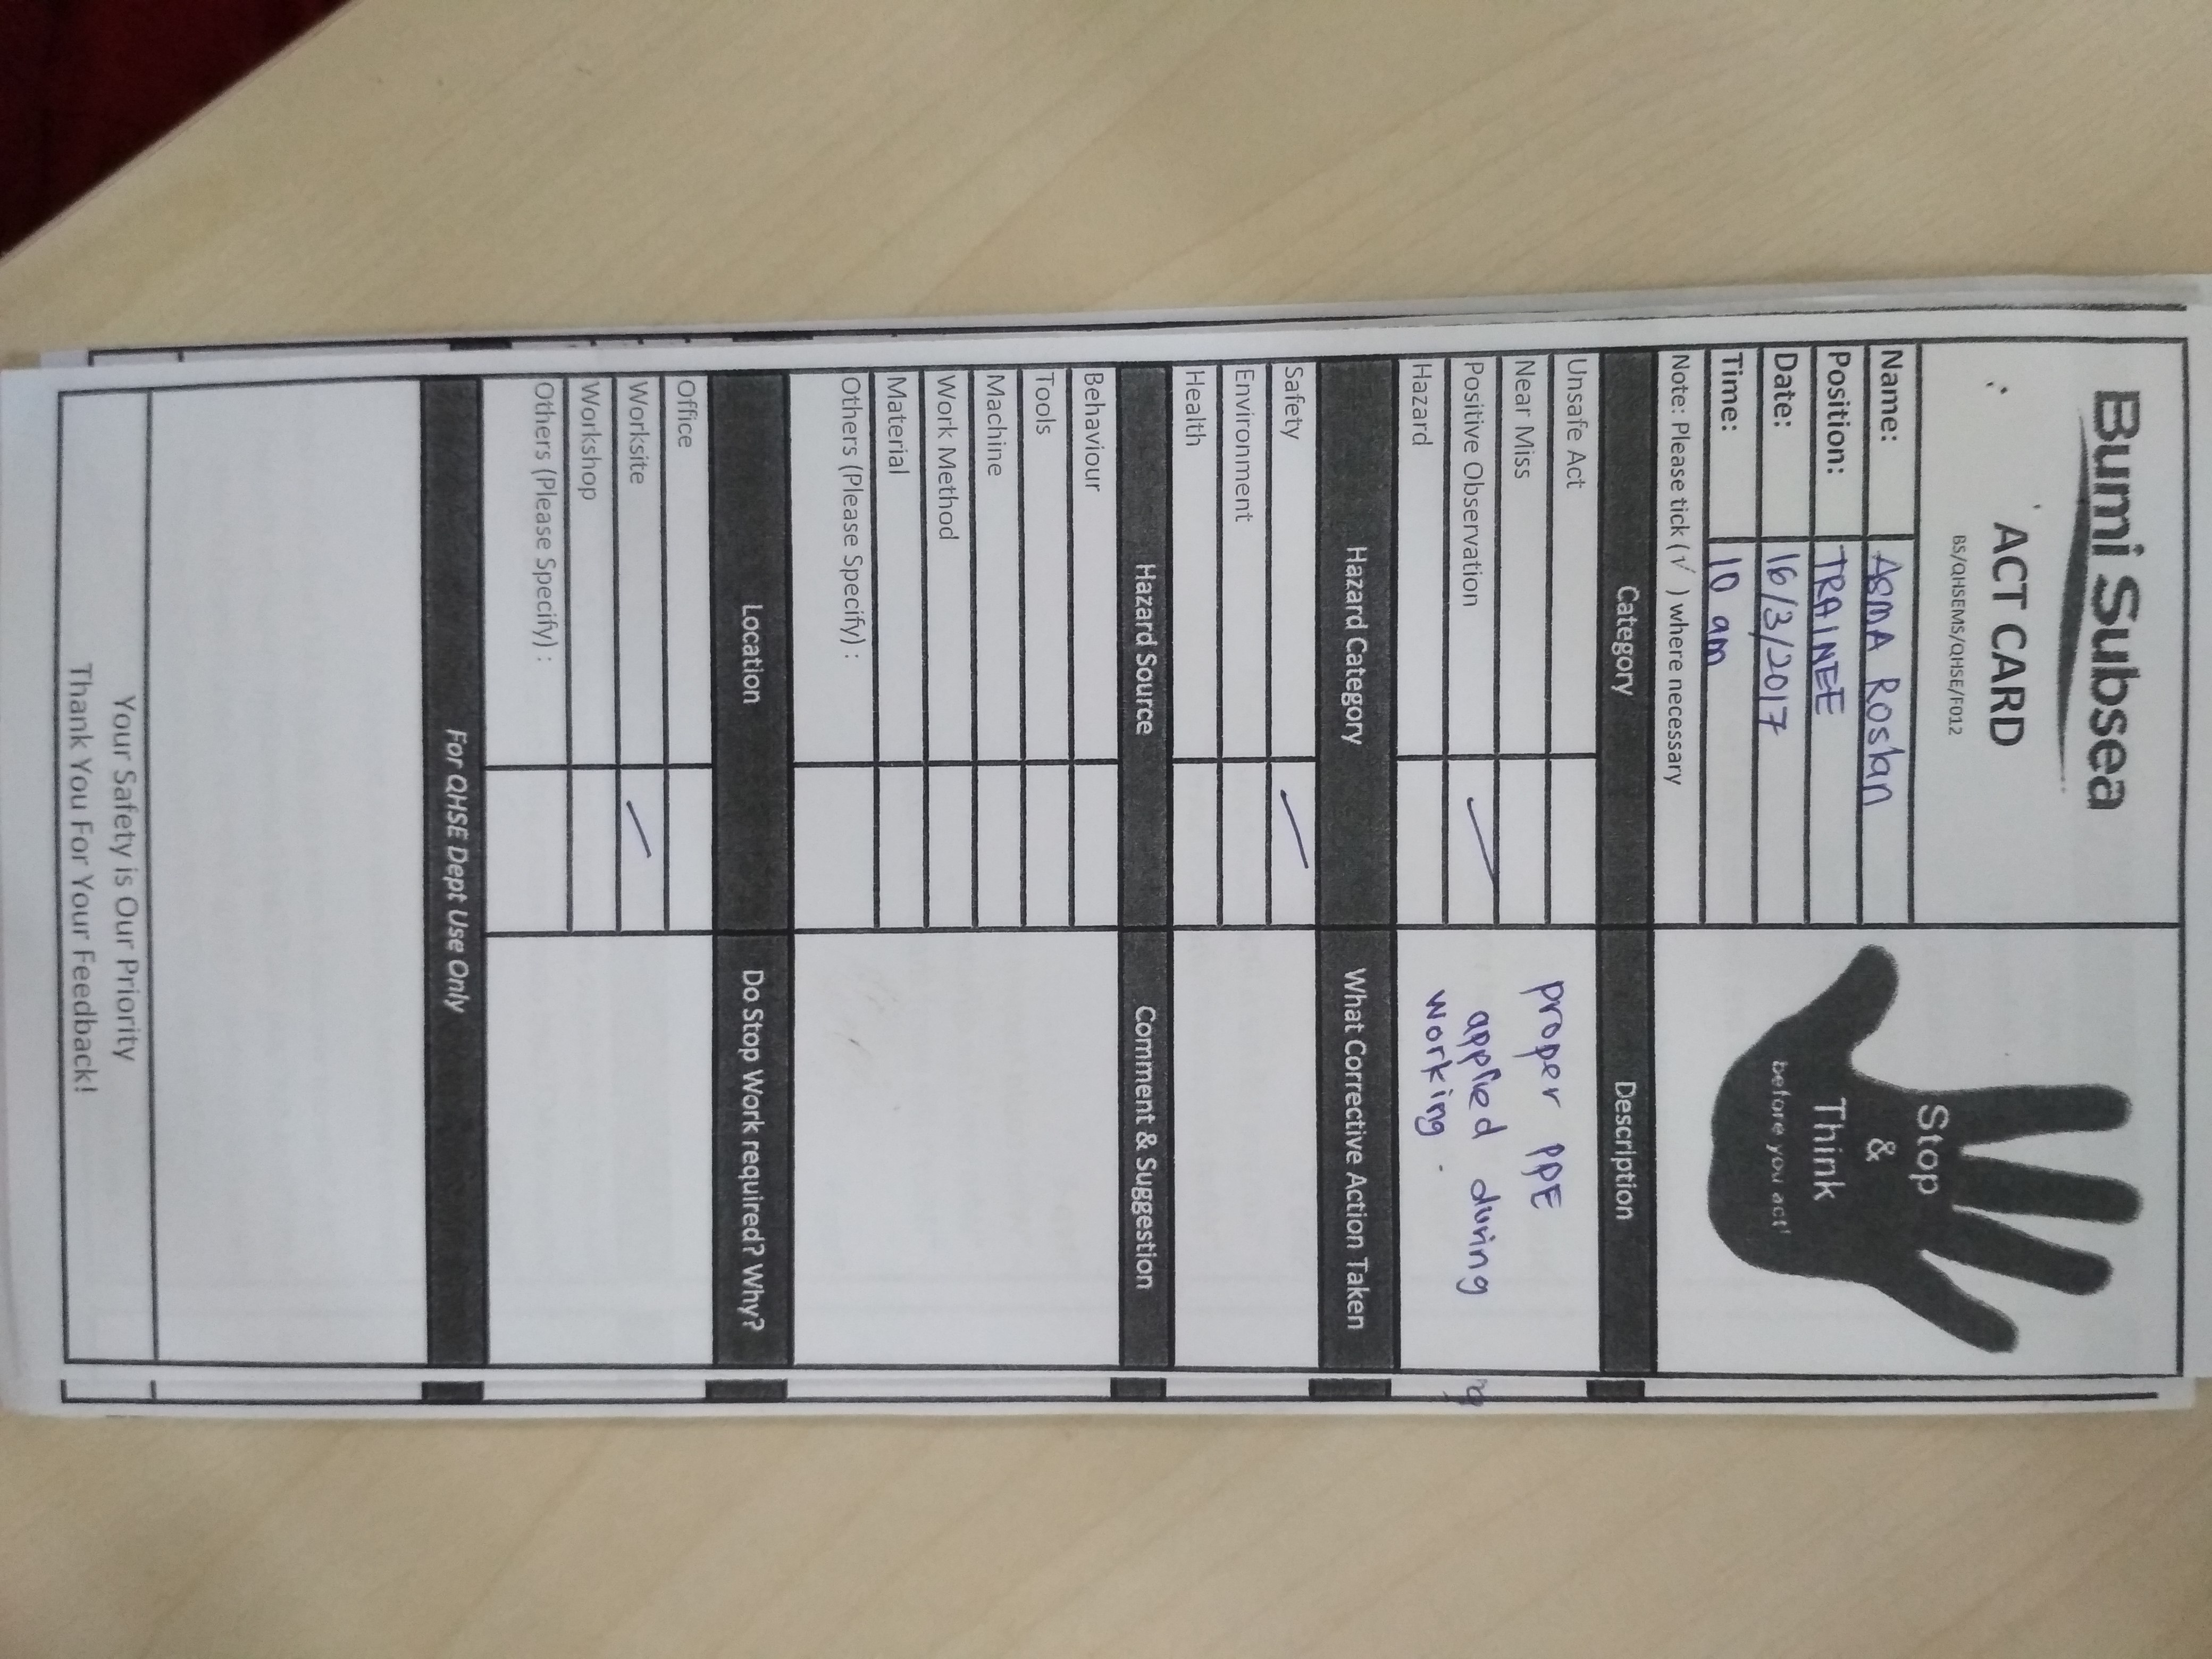 Bumi Subsea
ACT CARD
BS/QHSEMS/QHSE/F012
Stop
&
Think
before you act!
Name: ASMA Roslan
Position: TRAINEE
Date: 16/3/2017
Time: 10 am
Note: Please tick (√ ) where necessary
Category Description
Unsafe Act
Near Miss
Positive Observation
Hazard
proper PPE
applied during
working.
Hazard Category What Corrective Action Taken
Safety
Environment
Health
Hazard Source Comment & Suggestion
Behaviour
Tools
Machine
Work Method
Material
Others (Please Specify) :
Location Do Stop Work required? Why?
Office
Worksite
Workshop
Others (Please Specify) :
For QHSE Dept Use Only
Your Safety is Our Priority
Thank You For Your Feedback!